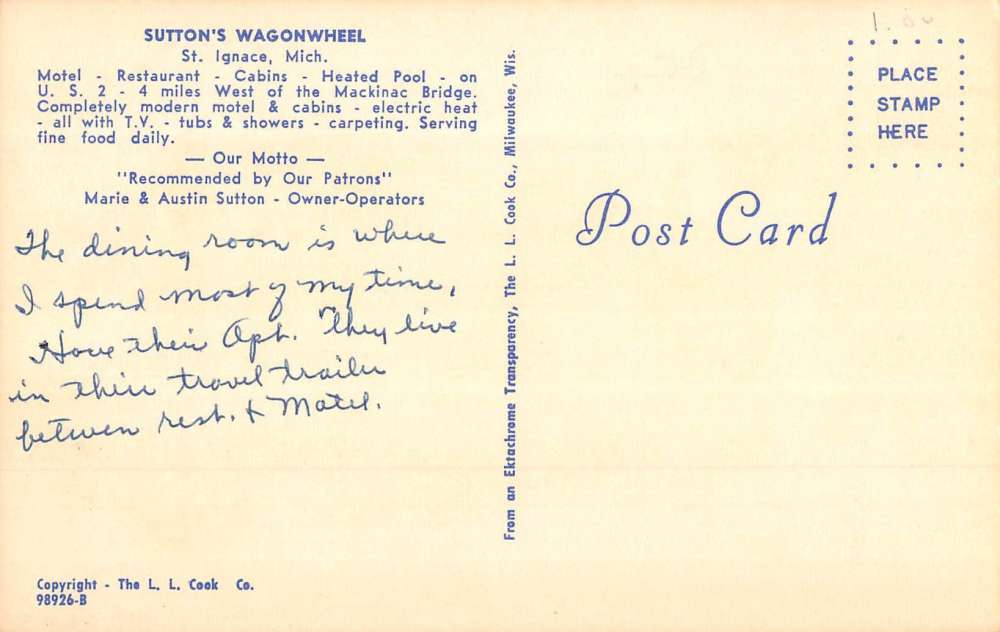 SUTTON'S WAGONWHEEL
St. Ignace, Mich.
Motel - Restaurant - Cabins - Heated Pool - on
U. S. 2 - 4 miles West of the Mackinac Bridge.
Completely modern motel & cabins - electric heat
- all with T.V. - tubs & showers - carpeting. Serving
fine food daily.
— Our Motto —
"Recommended by Our Patrons"
Marie & Austin Sutton - Owner-Operators
The dining room is where
I spend most of my time,
Have their Apt. They live
in their travel trailer
between rest. & Motel.
Copyright - The L. L. Cook Co.
98926-B
From an Ektachrome Transparency, The L. L. Cook Co., Milwaukee, Wis.
Post Card
PLACE
STAMP
HERE